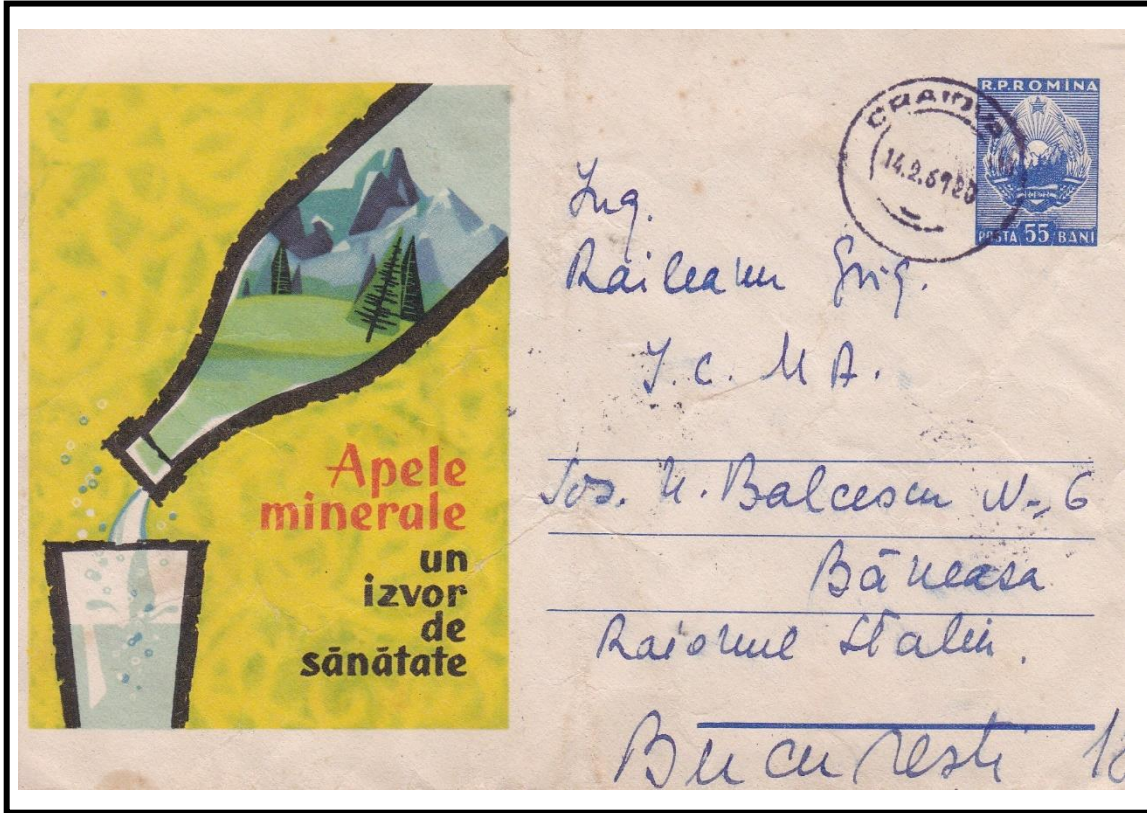 Apele
minerale
un
izvor
de
sănătate
R.P.ROMÎNA
POSTA 55 BANI
CRAIOVA
14.2.61 20
Ing.
Raileanu Grig.
I. C. M A.
Sos. N. Balcescu Nr. 6
Băneasa
Raionul Stalin.
Bucuresti